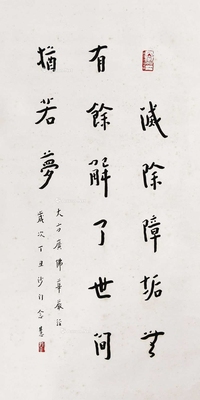 滅除障垢無
有餘解了世間
猶若夢
大方廣佛華嚴經
歲次丁丑沙門